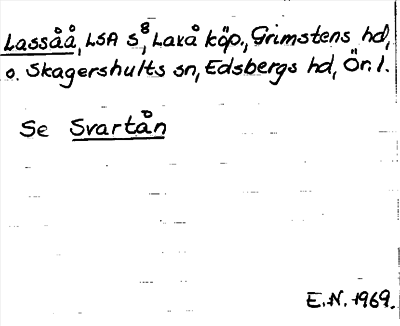 Lassåå, LSA S⁸, Laxå köp., Grimstens hd,
o. Skagershults sn, Edsbergs hd, Ör. l.
Se Svartån
E.N. 1969.